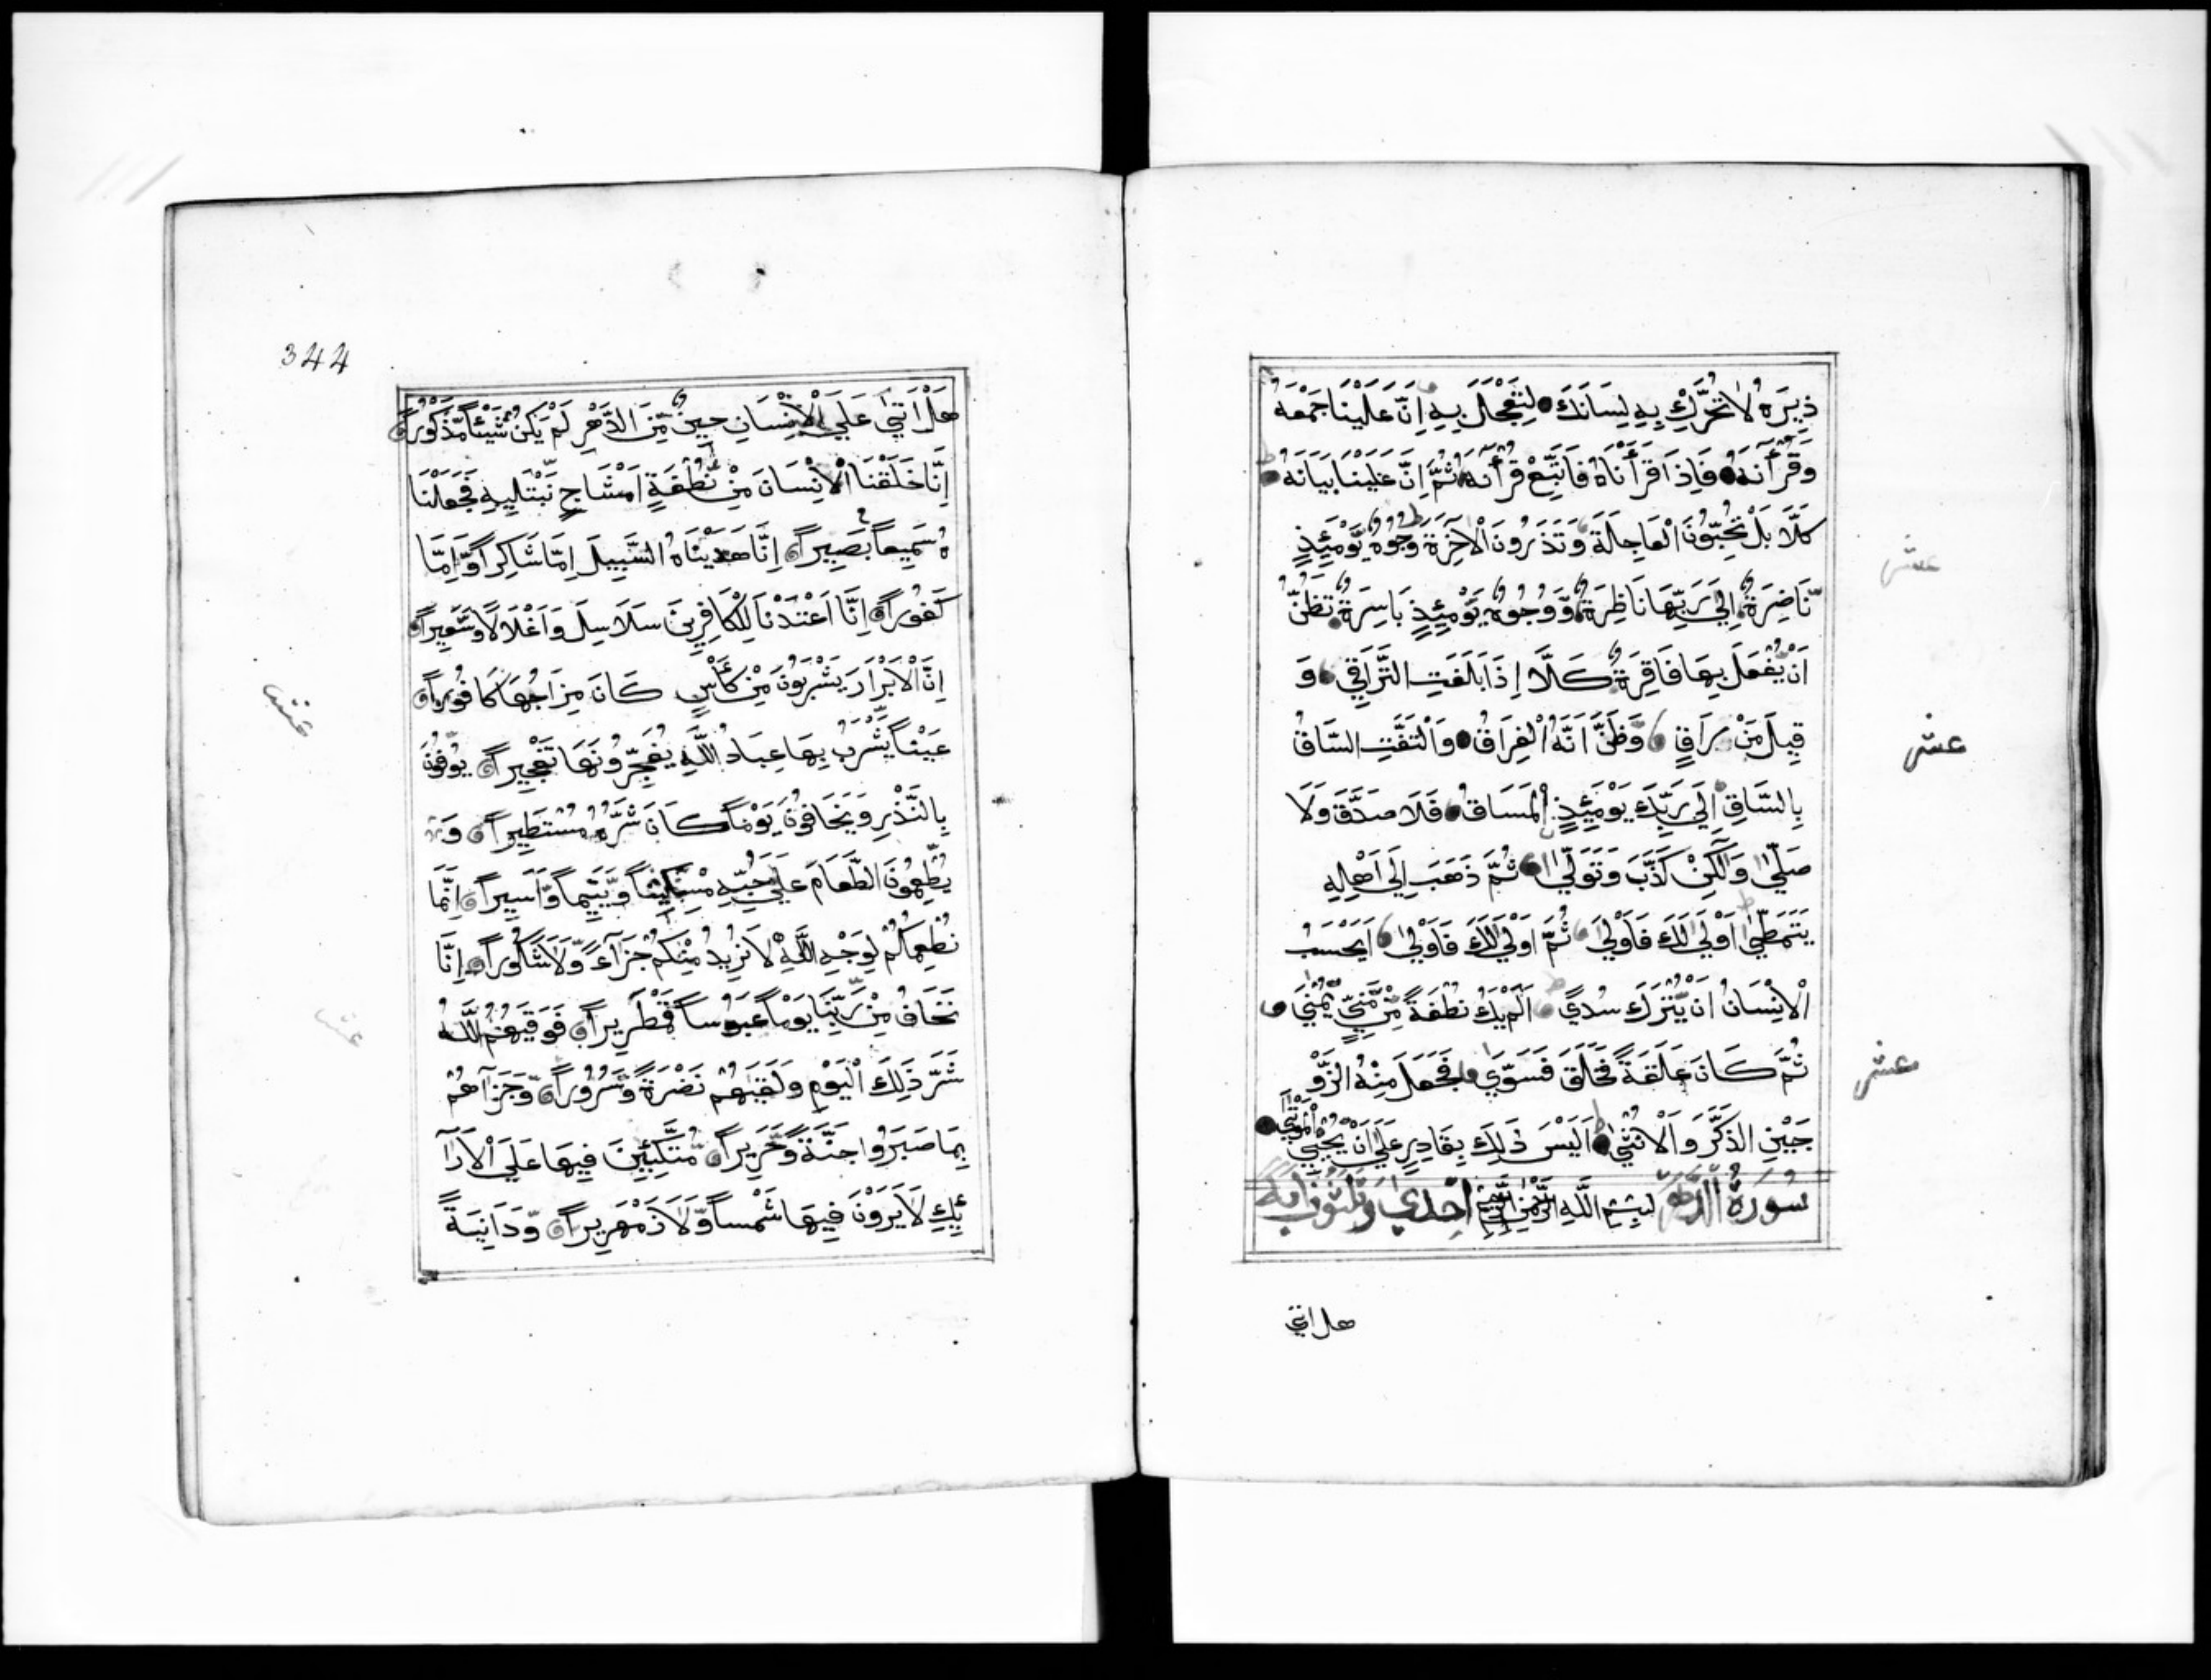 ذِيرَهُ لَا تُحَرِّكْ بِهِ لِسَانَكَ لِتَعْجَلَ بِهِ اِنَّ عَلَيْنَا جَمْعَهُ
وَقُرْآنَهُ فَاِذَا قَرَأْنَاهُ فَاتَّبِعْ قُرْآنَهُ ثُمَّ اِنَّ عَلَيْنَا بَيَانَهُ
كَلَّا بَلْ تُحِبُّونَ الْعَاجِلَةَ وَتَذَرُونَ الْاٰخِرَةَ وُجُوهٌ يَّوْمَئِذٍ
نَّاضِرَةٌ اِلَى رَبِّهَا نَاظِرَةٌ وَّوُجُوهٌ يَّوْمَئِذٍ بَاسِرَةٌ تَظُنُّ
اَنْ يُّفْعَلَ بِهَا فَاقِرَةٌ كَلَّا اِذَا بَلَغَتِ التَّرَاقِيَ وَ
قِيلَ مَنْ رَاقٍ وَظَنَّ اَنَّهُ الْفِرَاقُ وَالْتَفَّتِ السَّاقُ
بِالسَّاقِ اِلَى رَبِّكَ يَوْمَئِذٍ الْمَسَاقُ فَلَا صَدَّقَ وَلَا
صَلّٰى وَلٰكِنْ كَذَّبَ وَتَوَلّٰى ثُمَّ ذَهَبَ اِلَى اَهْلِهِ
يَتَمَطّٰى اَوْلٰى لَكَ فَاَوْلٰى ثُمَّ اَوْلٰى لَكَ فَاَوْلٰى اَيَحْسَبُ
الْاِنْسَانُ اَنْ يُّتْرَكَ سُدًى اَلَمْ يَكُ نُطْفَةً مِّنْ مَّنِيٍّ يُّمْنٰى
ثُمَّ كَانَ عَلَقَةً فَخَلَقَ فَسَوّٰى فَجَعَلَ مِنْهُ الزَّوْ
جَيْنِ الذَّكَرَ وَالْاُنْثٰى اَلَيْسَ ذٰلِكَ بِقَادِرٍ عَلَى اَنْ يُّحْيِيَ الْمَوْتٰى
سُورَةُ الدَّهْرِ بِسْمِ اللّٰهِ الرَّحْمٰنِ الرَّحِيمِ اِحْدٰى وَثَلٰثُونَ اٰيَةً
هل اتى
عشر
عشر
عشر
344
هَلْ اَتٰى عَلَى الْاِنْسَانِ حِينٌ مِّنَ الدَّهْرِ لَمْ يَكُنْ شَيْئًا مَّذْكُورًا
اِنَّا خَلَقْنَا الْاِنْسَانَ مِنْ نُّطْفَةٍ اَمْشَاجٍ نَّبْتَلِيهِ فَجَعَلْنَا
هُ سَمِيعًا بَصِيرًا اِنَّا هَدَيْنَاهُ السَّبِيلَ اِمَّا شَاكِرًا وَّاِمَّا
كَفُورًا اِنَّا اَعْتَدْنَا لِلْكَافِرِينَ سَلَاسِلَ وَاَغْلَالًا وَّسَعِيرًا
اِنَّ الْاَبْرَارَ يَشْرَبُونَ مِنْ كَأْسٍ كَانَ مِزَاجُهَا كَافُورًا
عَيْنًا يَّشْرَبُ بِهَا عِبَادُ اللّٰهِ يُفَجِّرُونَهَا تَفْجِيرًا يُوفُونَ
بِالنَّذْرِ وَيَخَافُونَ يَوْمًا كَانَ شَرُّهُ مُسْتَطِيرًا وَ
يُطْعِمُونَ الطَّعَامَ عَلَى حُبِّهِ مِسْكِينًا وَّيَتِيمًا وَّاَسِيرًا اِنَّمَا
نُطْعِمُكُمْ لِوَجْهِ اللّٰهِ لَا نُرِيدُ مِنْكُمْ جَزَآءً وَّلَا شُكُورًا اِنَّا
نَخَافُ مِنْ رَّبِّنَا يَوْمًا عَبُوسًا قَمْطَرِيرًا فَوَقٰيهُمُ اللّٰهُ
شَرَّ ذٰلِكَ الْيَوْمِ وَلَقّٰيهُمْ نَضْرَةً وَّسُرُورًا وَّجَزَاهُمْ
بِمَا صَبَرُوا جَنَّةً وَّحَرِيرًا مُّتَّكِئِينَ فِيهَا عَلَى الْاَرَآ
ئِكِ لَا يَرَوْنَ فِيهَا شَمْسًا وَّلَا زَمْهَرِيرًا وَّدَانِيَةً
عشر
عشر